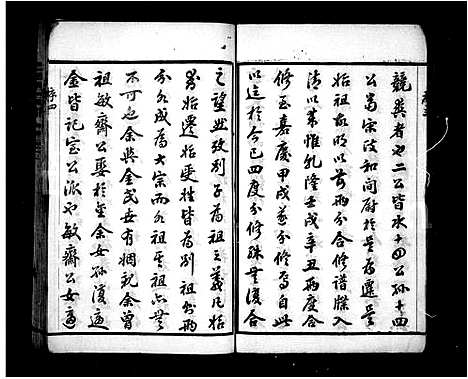 競英者也二公皆水十四公孫十四
公當宋政和間尉於是為選是
始祖求明以前兩分合修譜牒入
清以來惟乾隆壬戌辛丑兩度合
修至嘉慶甲戌遂分修焉自此
以迄於今已四度分修殊無復合
之望然攷別子為祖之義凡始
界始遷始爽性皆為別祖別兩
分久成為大宗而其祖之祖亦無
不可也余與金氏世有姻親余曾
祖敏齋公娶於金余女孫復適
金皆記室公派也敏齋公女適
序三
序四